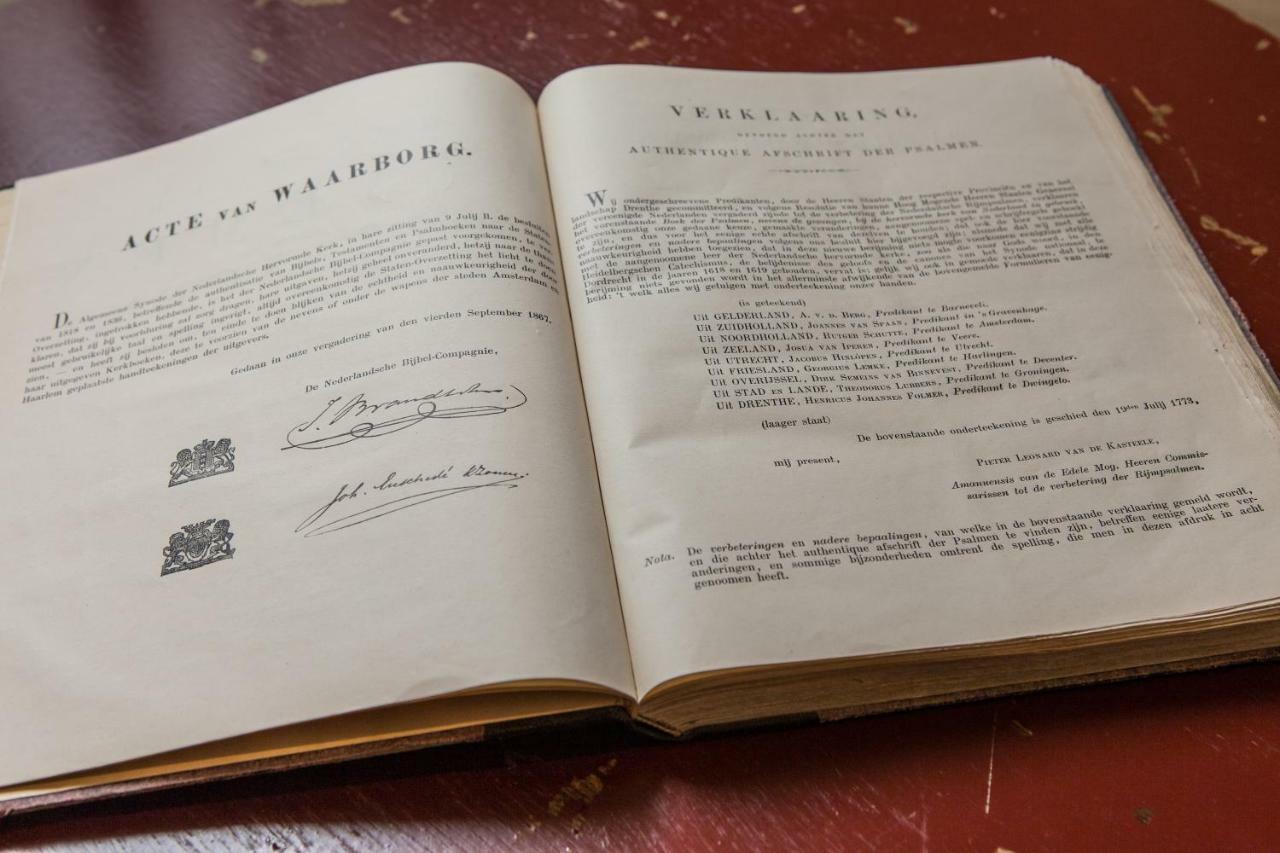 ACTE VAN WAARBORG.
De Algemeene Synode der Nederlandsche Hervormde Kerk, in hare zitting van 9 Julij ll. de besluiten
van 1818 en 1839, betreffende de authentisatie van Bijbels, Testamenten en Psalmboeken naar de Staten-
Overzetting, ingetrokken hebbende, is het der Nederlandsche Bijbel-Compagnie gepast voorgekomen, te ver-
klaren, dat zij bij voortduring zal zorg dragen, hare uitgaven, hetzij geheel onveranderd, hetzij naar de thans
meest gebruikelijke taal en spelling ingerigt, altijd overeenkomstig de Staten-Overzetting het licht te doen
zien, — en heeft zij besloten om, ten einde te doen blijken van de echtheid en naauwkeurigheid der door
haar uitgegeven Kerkboeken, deze te voorzien van de nevens of onder de wapens der steden Amsterdam en
Haarlem geplaatste handteekeningen der uitgevers.
Gedaan in onze vergadering van den vierden September 1867.
De Nederlandsche Bijbel-Compagnie,
J. Brandt
Joh. Enschedé & Zonen.
VERKLAARING,
GEVOEGD ACHTER HET
AUTHENTIQUE AFSCHRIFT DER PSALMEN.
Wij ondergeschreevene Predikanten, door de Heeren Staten der respective Provinciën en van het
landschap Drenthe gecommitteerd, en volgens Resolutie van hunne Hoog Mogende Heeren Staaten Generaal
der vereenigde Nederlanden vergaderd zijnde tot de verbetering der Nederduitsche Rijmpsalmen, verklaaren
het voorenstaande Boek der Psalmen, nevens de gezangen, bij de hervormde kerk van Nederland in gebruik,
overeenkomstig onze gedaane keuze, gemaakte veranderingen, aangenomene spel en schrijfregels gesteld
te zijn, en dus voor het eenige echte afschrift van dezelven te houden; dat wij de bovenstaande
verbeteringen en nadere bepaalingen volgens ons besluit hier bijgevoegd zijn; alsmede dat wij met alle
naauwkeurigheid hebben toegezien, dat in deze nieuwe berijming niets mogte voorkomen, 't geen strijdig
met de aangenomene leer der Nederlandsche hervormde kerke, zoo als die naar Gods woord, in den
Heidelbergschen Catechismus, de belijdenisse des geloofs en de canones van het Synode nationaal, te
Dordrecht in de jaaren 1618 en 1619 gehouden, vervat is; gelijk wij ook in gemoede verklaaren, dat in deze
berijming niets gevonden wordt in het allerminste afwijkende van de bovengemelde Formulieren van eenig-
heid: 't welk alles wij getuigen met onderteekening onzer handen.
(is geteekend)
Uit GELDERLAND, A. v. d. Berg, Predikant te Barneveld.
Uit ZUIDHOLLAND, Joannes van Spaan, Predikant in 's Gravenhage.
Uit NOORDHOLLAND, Rutger Schutte, Predikant te Amsterdam.
Uit ZEELAND, Josua van Iperen, Predikant te Veere.
Uit UTRECHT, Jacobus Hinlópen, Predikant te Utrecht.
Uit FRIESLAND, Georgius Lemke, Predikant te Harlingen.
Uit OVERIJSSEL, Dirk Semeins van Binnevest, Predikant te Deventer.
Uit STAD en LANDE, Theodorus Lubbers, Predikant te Groningen.
Uit DRENTHE, Henricus Johannes Folmer, Predikant te Dwingelo.
(laager staat)
De bovenstaande onderteekening is geschied den 19den Julij 1773,
mij present,
Pieter Leonard van de Kasteele,
Amanuensis van de Edele Mog. Heeren Commis-
sarissen tot de verbetering der Rijmpsalmen.
Nota. De verbeteringen en nadere bepaalingen, van welke in de bovenstaande verklaaring gemeld wordt,
en die achter het authentique afschrift der Psalmen te vinden zijn, betreffen eenige laatere ver-
anderingen, en sommige bijzonderheden omtrent de spelling, die men in dezen afdruk in acht
genoomen heeft.